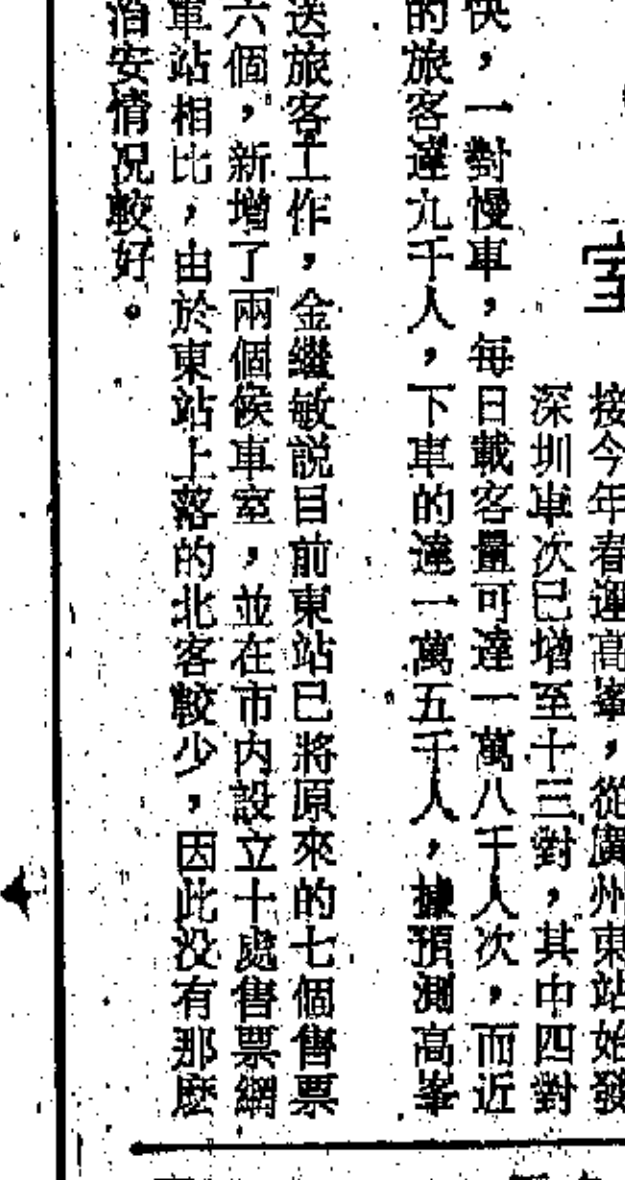 接今年春運高峯，從廣州東站始發
深圳車次已增至十三對，其中四對
快，一對慢車，每日載客量可達一萬八千人次，而近
的旅客達九千人，下車的達一萬五千人，據預測高峯
送旅客工作，金繼敏説目前東站已將原來的七個售票
六個，新增了兩個候車室，並在市内設立十處售票網
車站相比，由於東站上落的北客較少，因此没有那麽
治安情況較好。